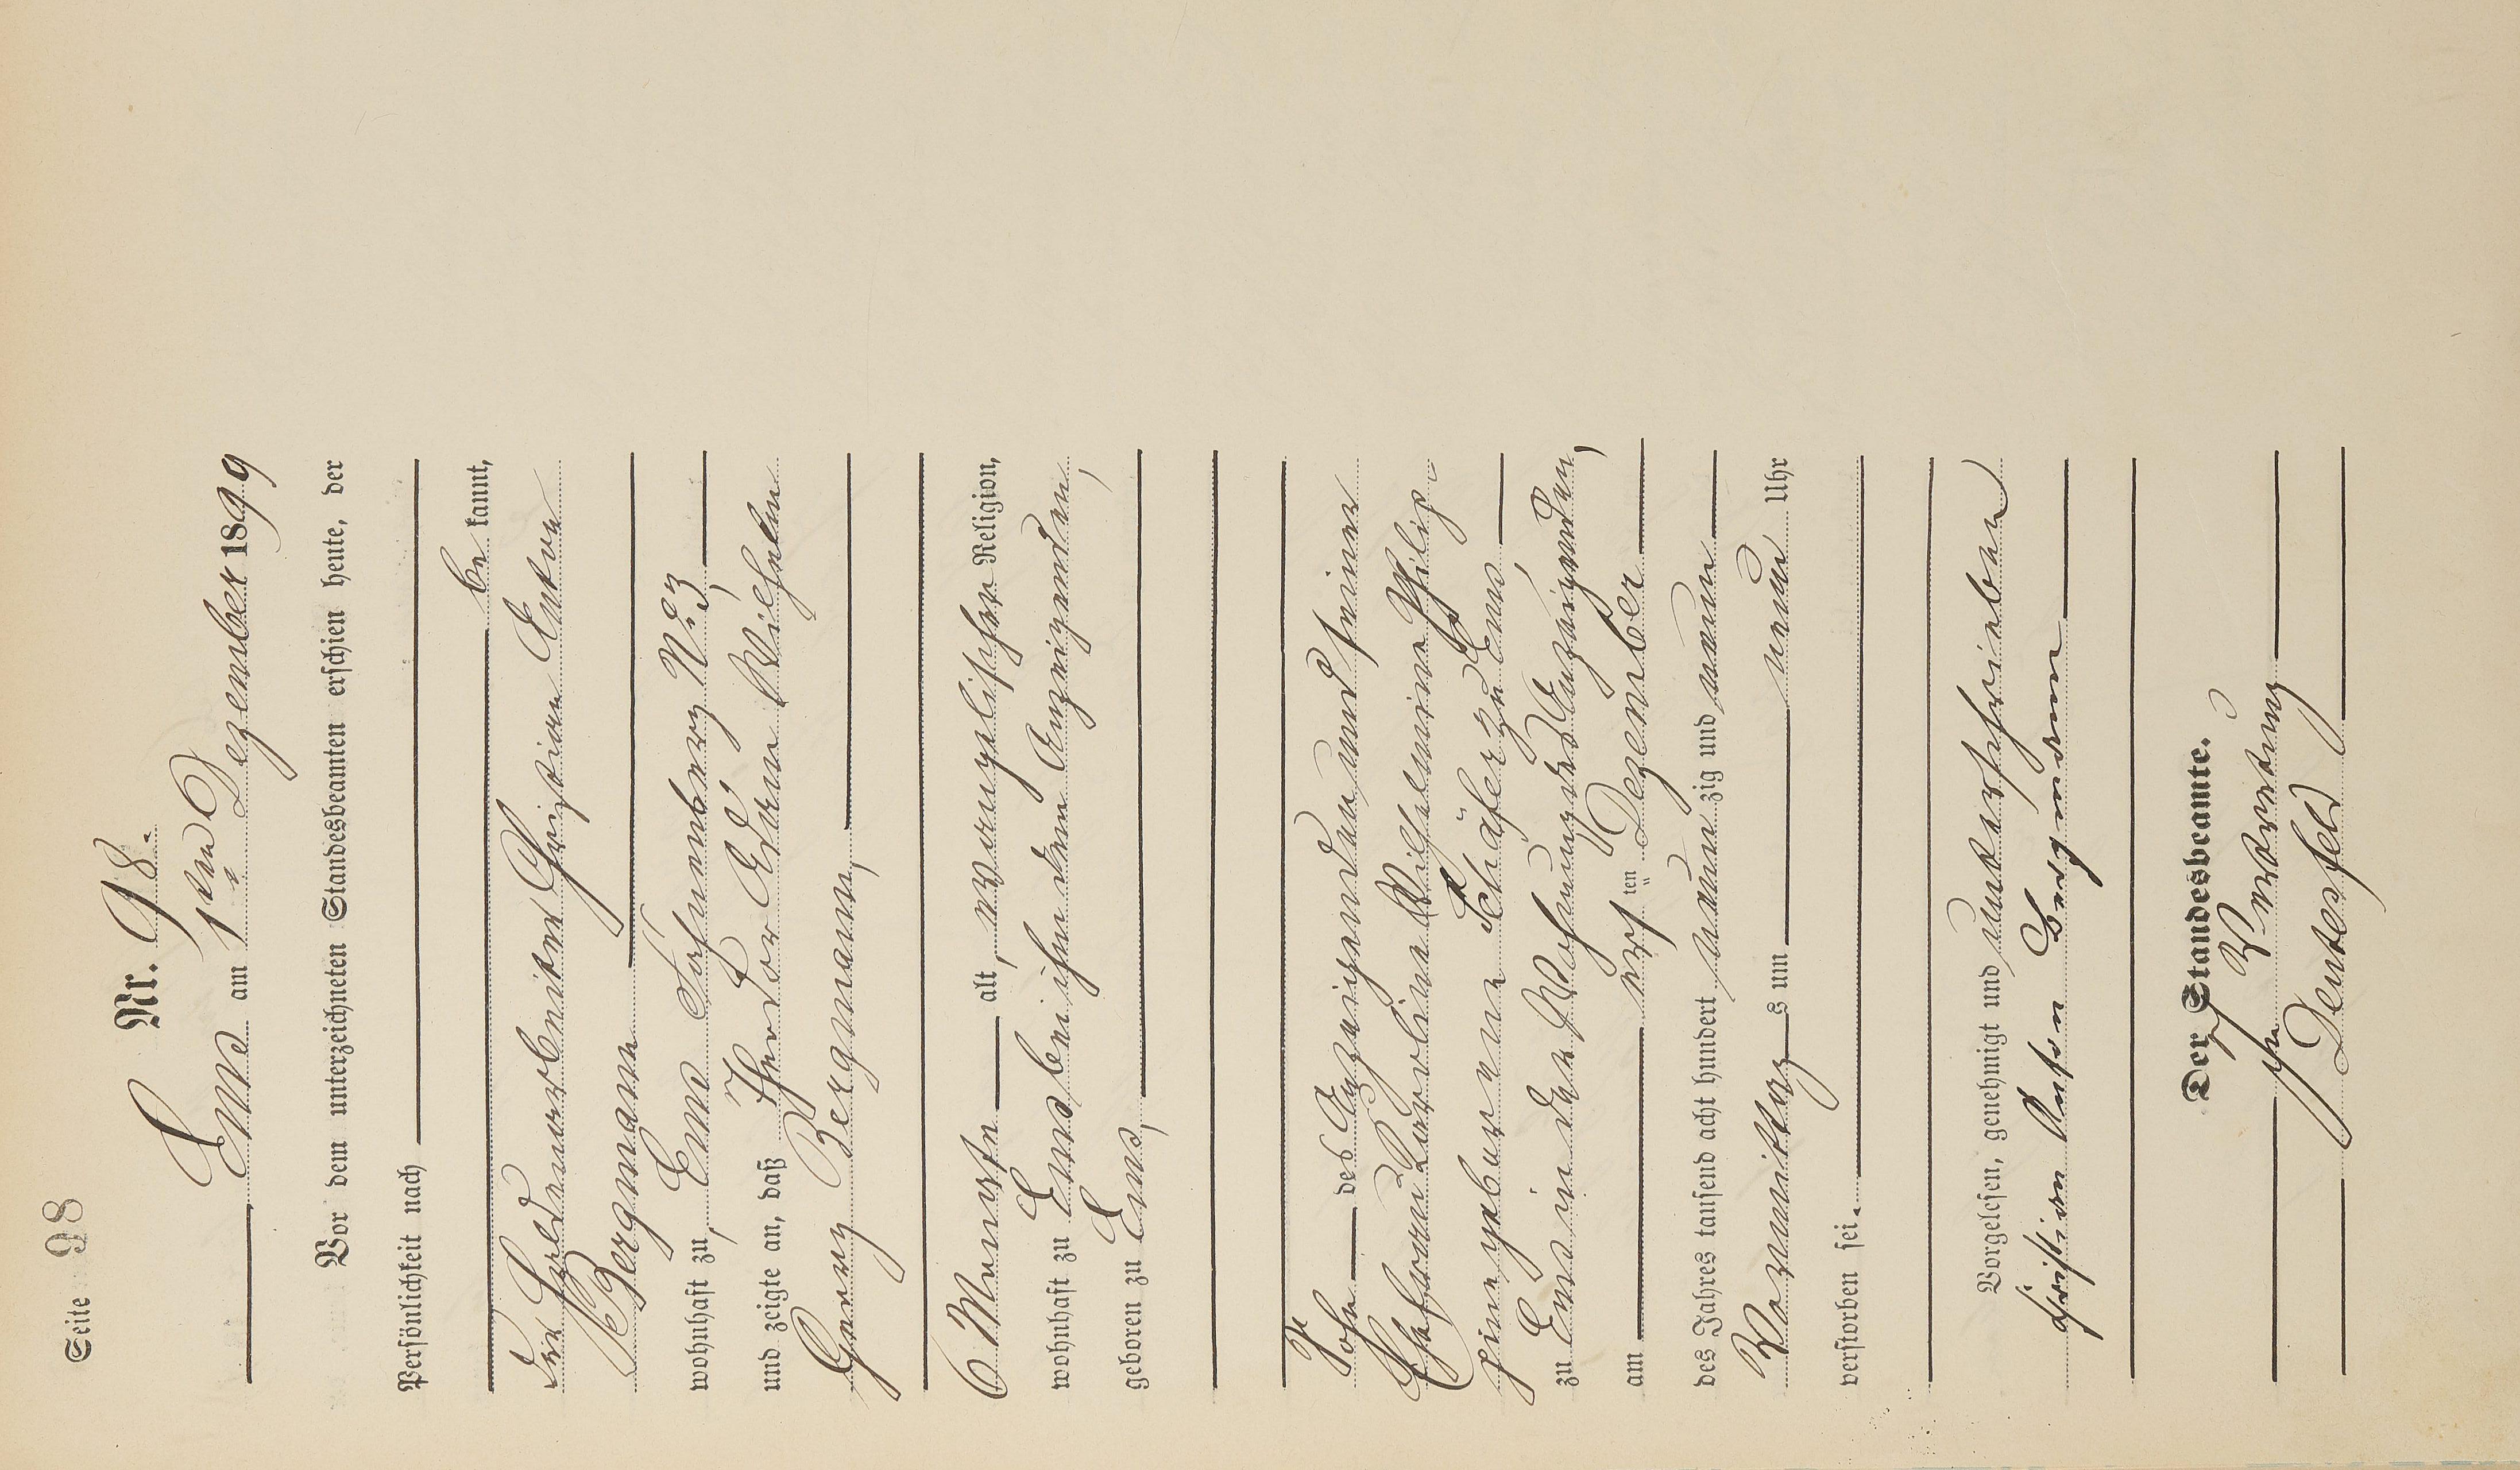 Seite 98
Nr. 98.
Ems am 1ten Dezember 1899
Vor dem unterzeichneten Standesbeamten erschien heute, der
Persönlichkeit nach
be kannt,
der Feldenarbeiter Christian Anton
Bergmann
wohnhaft zu, Ems No 3,
und zeigte an, daß Theodor Adam Wilhelm
Georg Bergmann,
6 Monate alt, evangelischer Religion,
wohnhaft zu Ems bei ihm dem Anzeigenden,
geboren zu Ems,
Sohn des Anzeigenden und seiner
Ehefrau Karoline Wilhelmine Philip-
pine geborene Schäfer zu Ems,
zu Ems in der Wohnung des Anzeigenden,
am ersten Dezember
des Jahres tausend acht hundert neun zig und neun
Vormittags um neun Uhr
verstorben sei.
Vorgelesen, genehmigt und unterschrieben
Christian Anton Bergmann
Der Standesbeamte.
In Vertretung